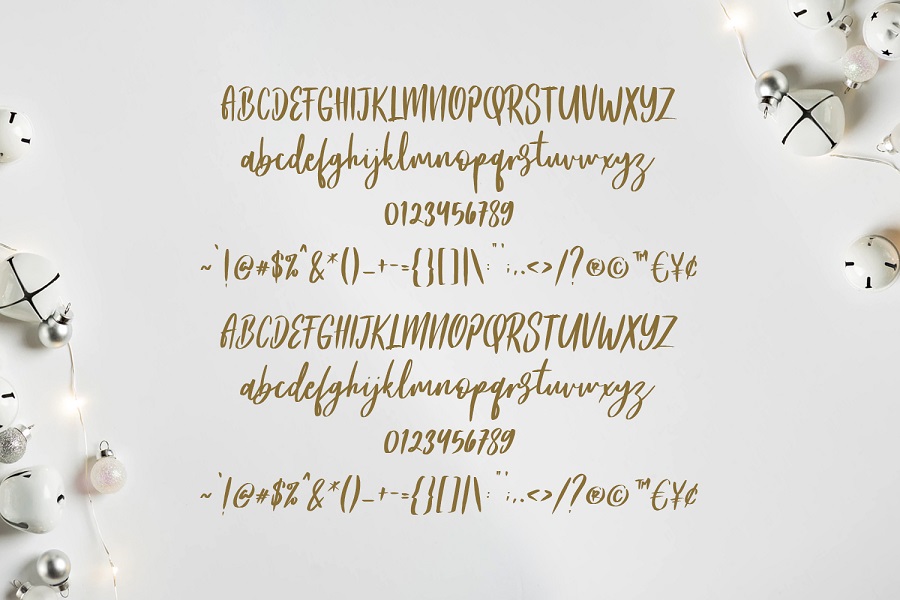 ABCDEFGHIJKLMNOPQRSTUVWXYZ
abcdefghijklmnopqrstuvwxyz
0123456789
~`!@#$%^&*()_+-={}[]|\:"';,.<>/?®©™€¥¢
ABCDEFGHIJKLMNOPQRSTUVWXYZ
abcdefghijklmnopqrstuvwxyz
0123456789
~`!@#$%^&*()_+-={}[]|\:"';,.<>/?®©™€¥¢